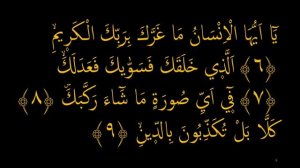 يَٓا اَيُّهَا الْاِنْسَانُ مَا غَرَّكَ بِرَبِّكَ الْكَر۪يمِۙ
﴿٦﴾ اَلَّذ۪ي خَلَقَكَ فَسَوّٰيكَ فَعَدَلَكَۙ
﴿٧﴾ ف۪ٓي اَيِّ صُورَةٍ مَا شَٓاءَ رَكَّبَكَۜ ﴿٨﴾
كَلَّا بَلْ تُكَذِّبُونَ بِالدّ۪ينِۙ ﴿٩﴾